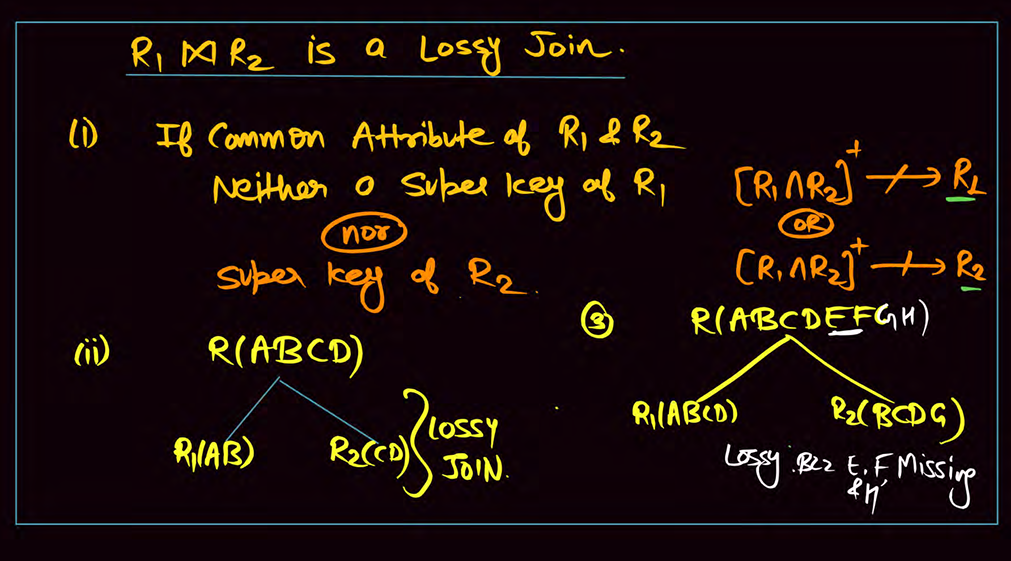 R1 ⋈ R2 is a Lossy Join.
(i) If Common Attribute of R1 & R2
Neither a Super key of R1
nor
Super key of R2.
[R1 ∩ R2]⁺ ↛ R1
OR
[R1 ∩ R2]⁺ ↛ R2
(ii) R(ABCD)
R1(AB) R2(CD) } LOSSY
JOIN.
③ R(ABCDEFGH)
R1(ABCD) R2(BCDG)
Lossy : Bcz E, F Missing
& H